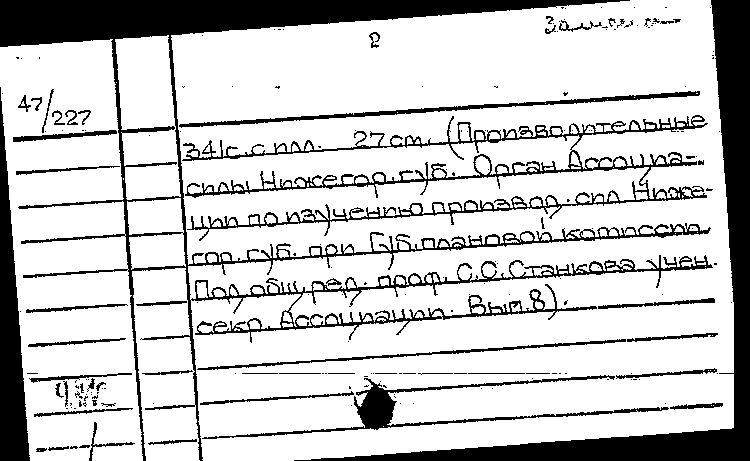 2
47/227
341с. с илл. 27 см. (Производительные
силы Нижегор. губ. Орган Ассоциа-
ции по изучению производ. сил Ниже-
гор. губ. при Губ. плановой комиссии.
Под общ. ред. проф. С.С. Станкова учен.
секр. Ассоциации. Вып. 8).